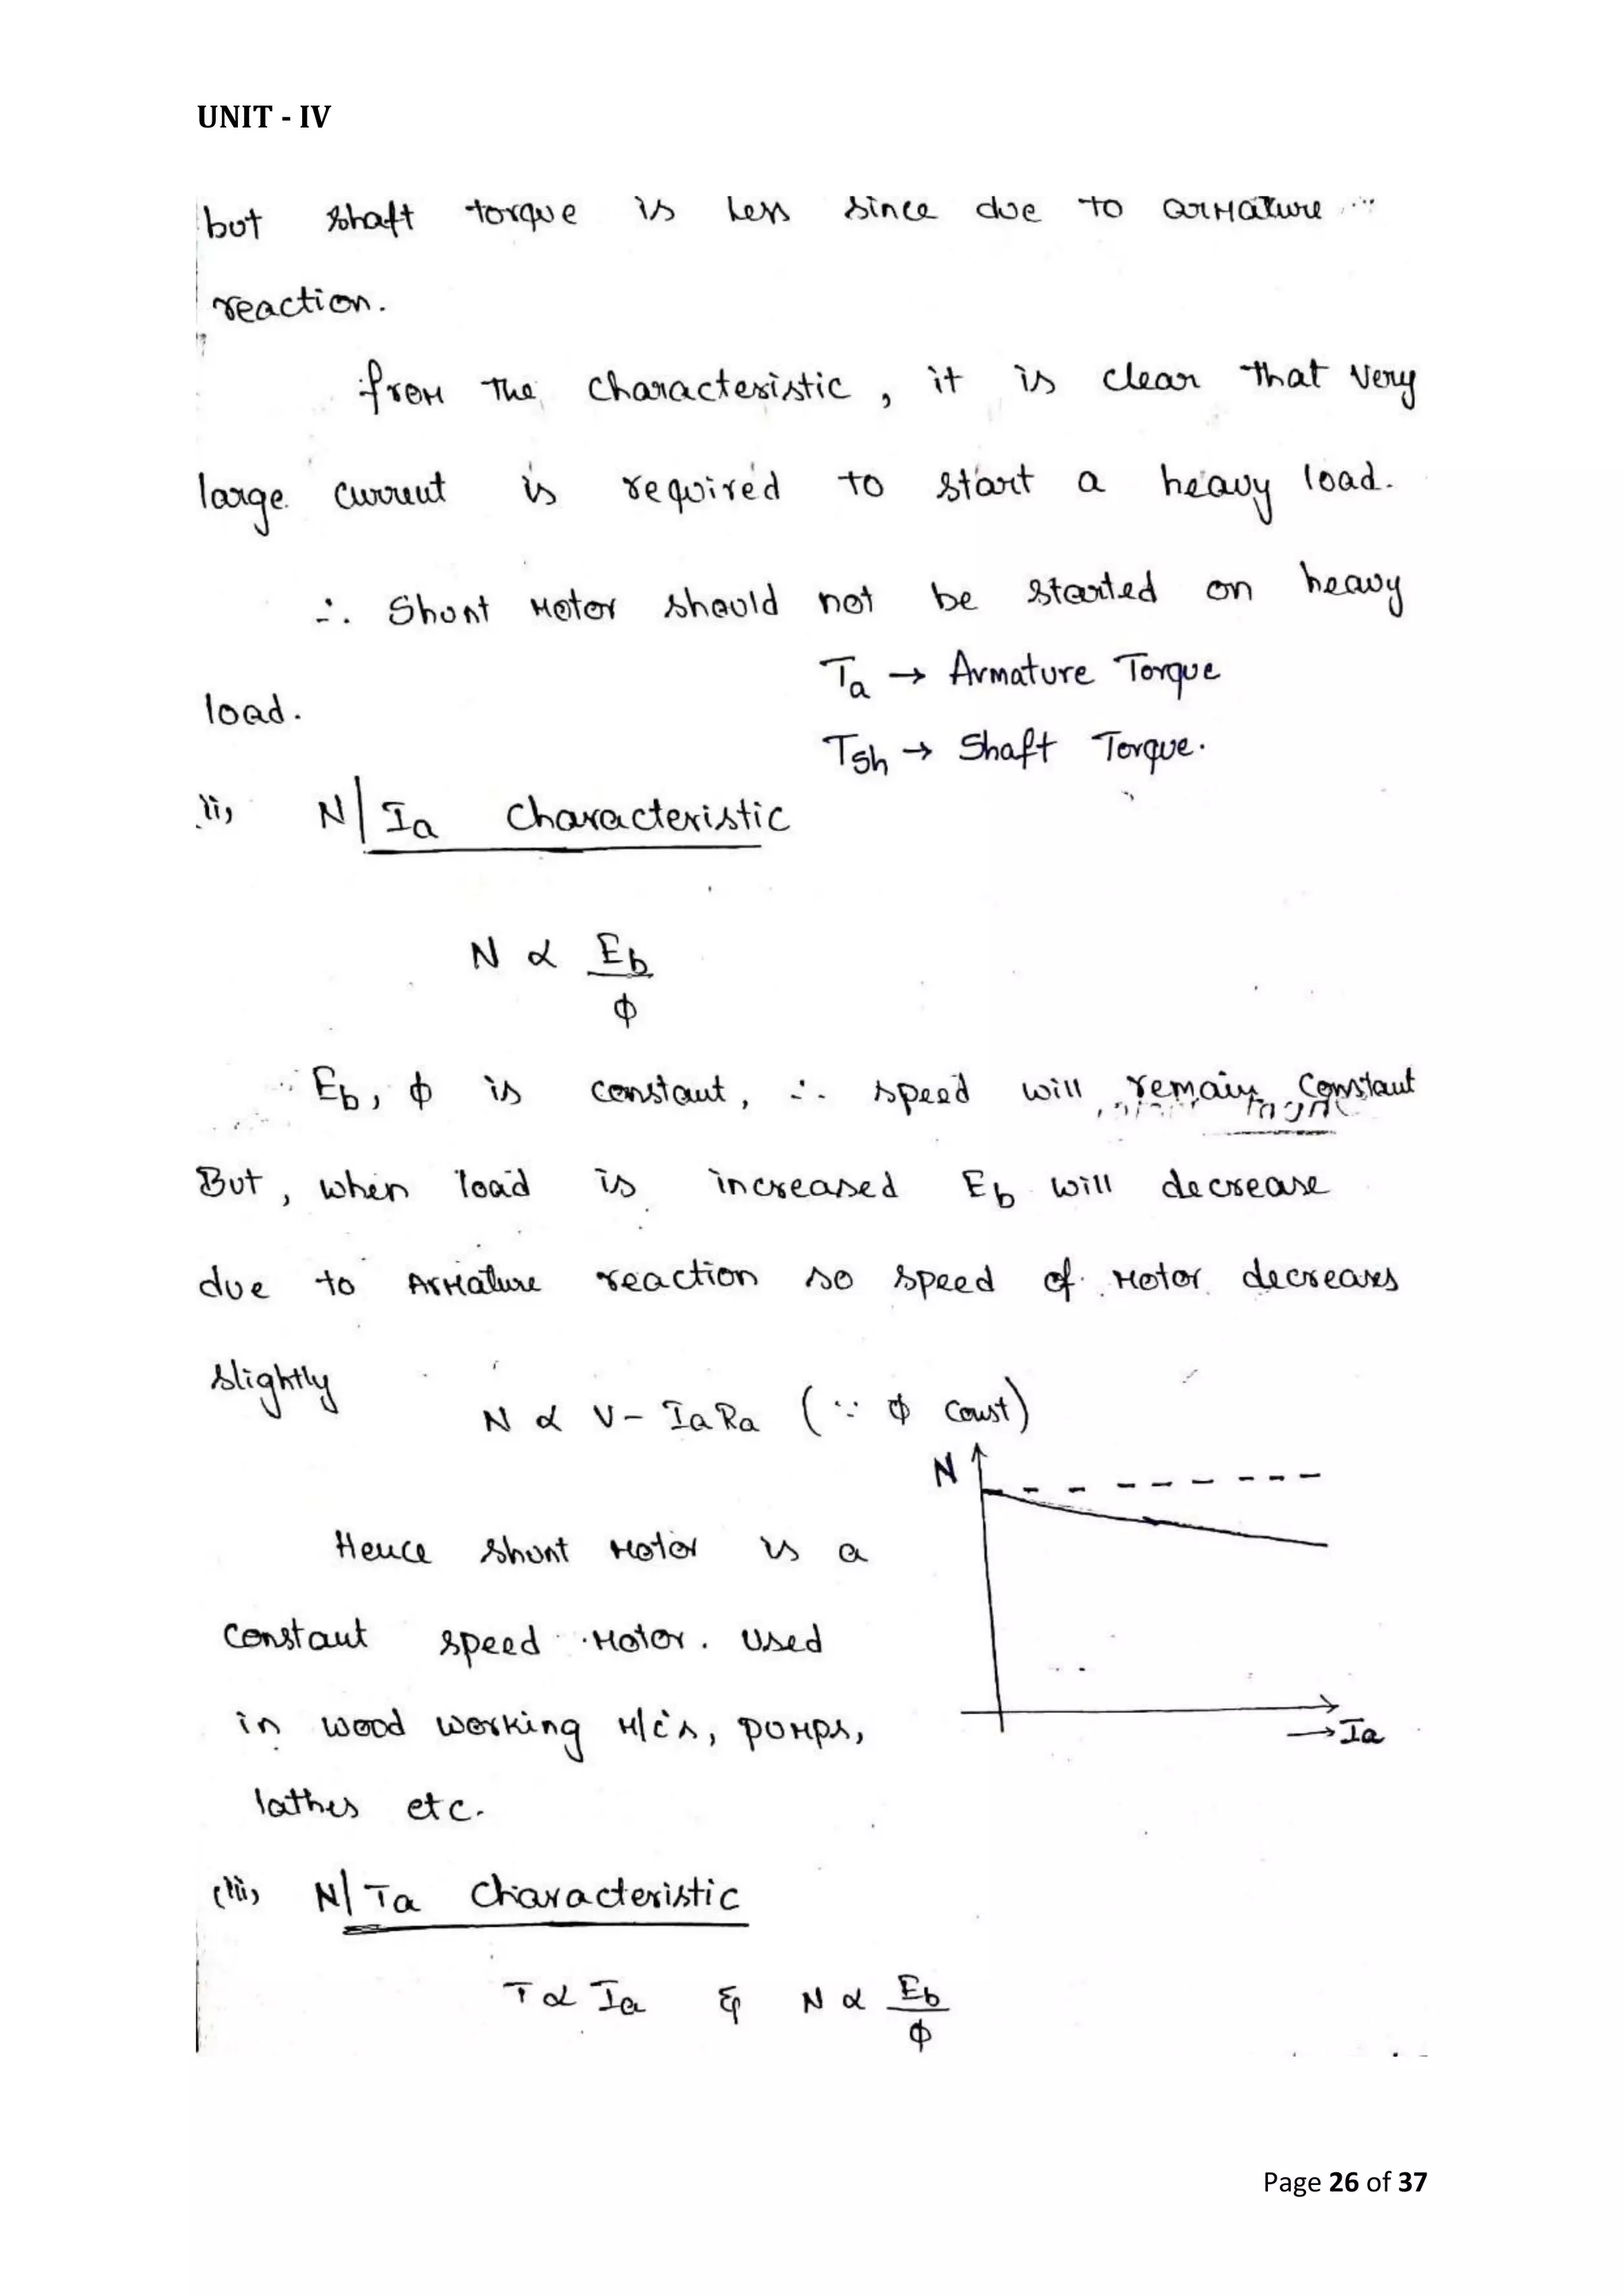 UNIT - IV
but shaft torque is less since due to armature
reaction.
from the characteristic, it is clear that very
large current is required to start a heavy load.
∴ Shunt motor should not be started on heavy
load.
Ta → Armature Torque
Tsh → Shaft Torque.
ii, N/Ia characteristic
N ∝ Eb
ϕ
Eb, ϕ is constant, ∴ speed will remain constant
But, when load is increased Eb will decrease
due to Armature reaction so speed of motor decreases
slightly
N ∝ V - IaRa (∵ ϕ const)
N
Hence shunt motor is a
constant speed motor. Used
in wood working M/c's, pumps,
→ Ia
lathes etc.
(iii, N/Ta characteristic
T ∝ Ia & N ∝ Eb
ϕ
Page 26 of 37